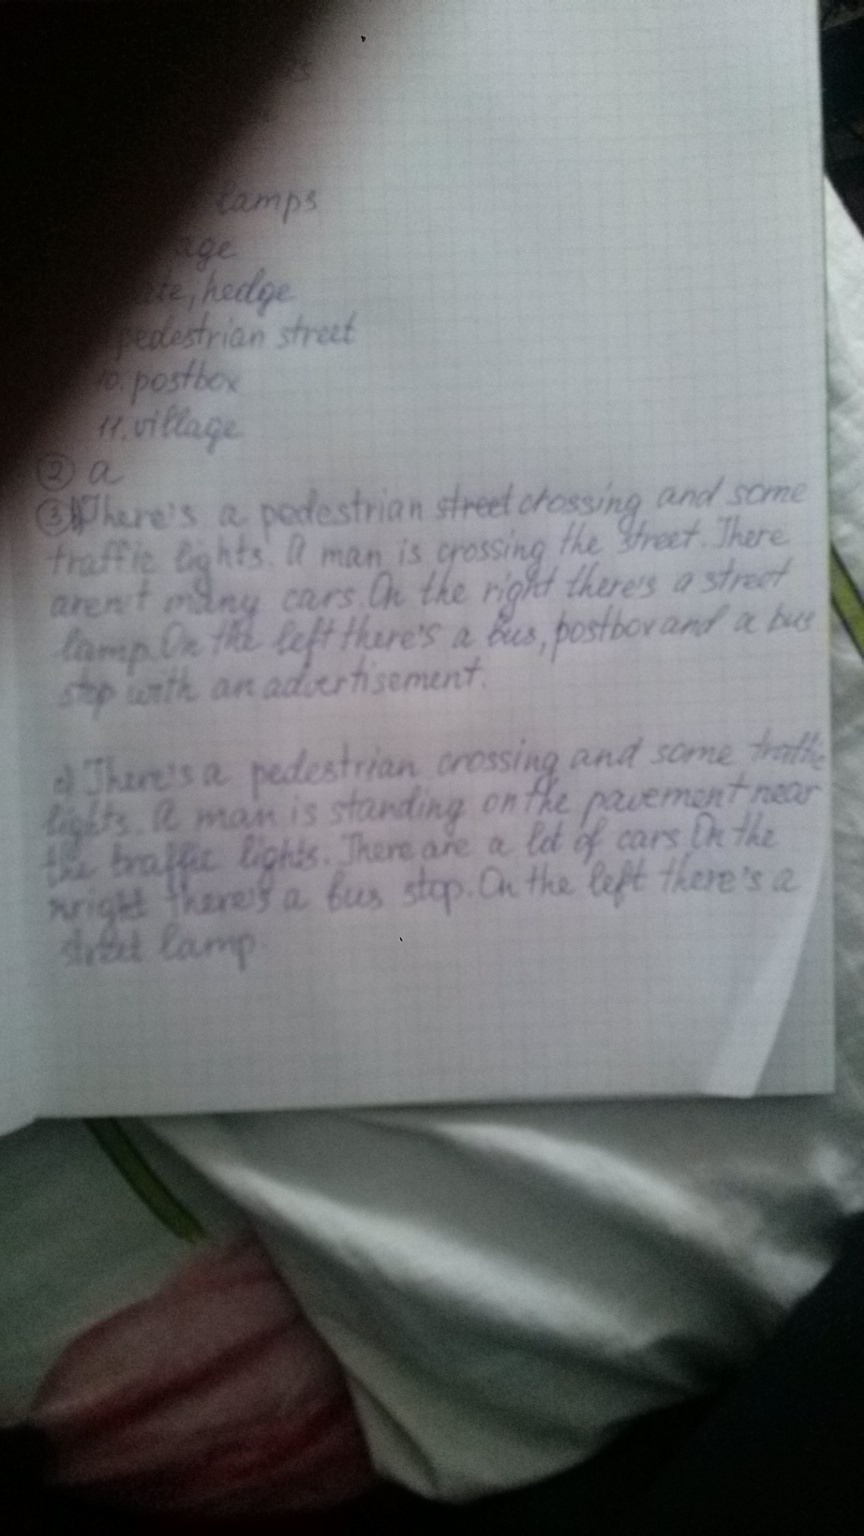 lamps
hedge
pedestrian street
10. postbox
11. village
② a
③ There's a pedestrian street crossing and some
traffic lights. A man is crossing the street. There
aren't many cars. On the right there's a street
lamp. On the left there's a bus, postbox and a bus
stop with an advertisement.
c) There's a pedestrian crossing and some traffic
lights. A man is standing on the pavement near
the traffic lights. There are a lot of cars. On the
right there's a bus stop. On the left there's a
street lamp